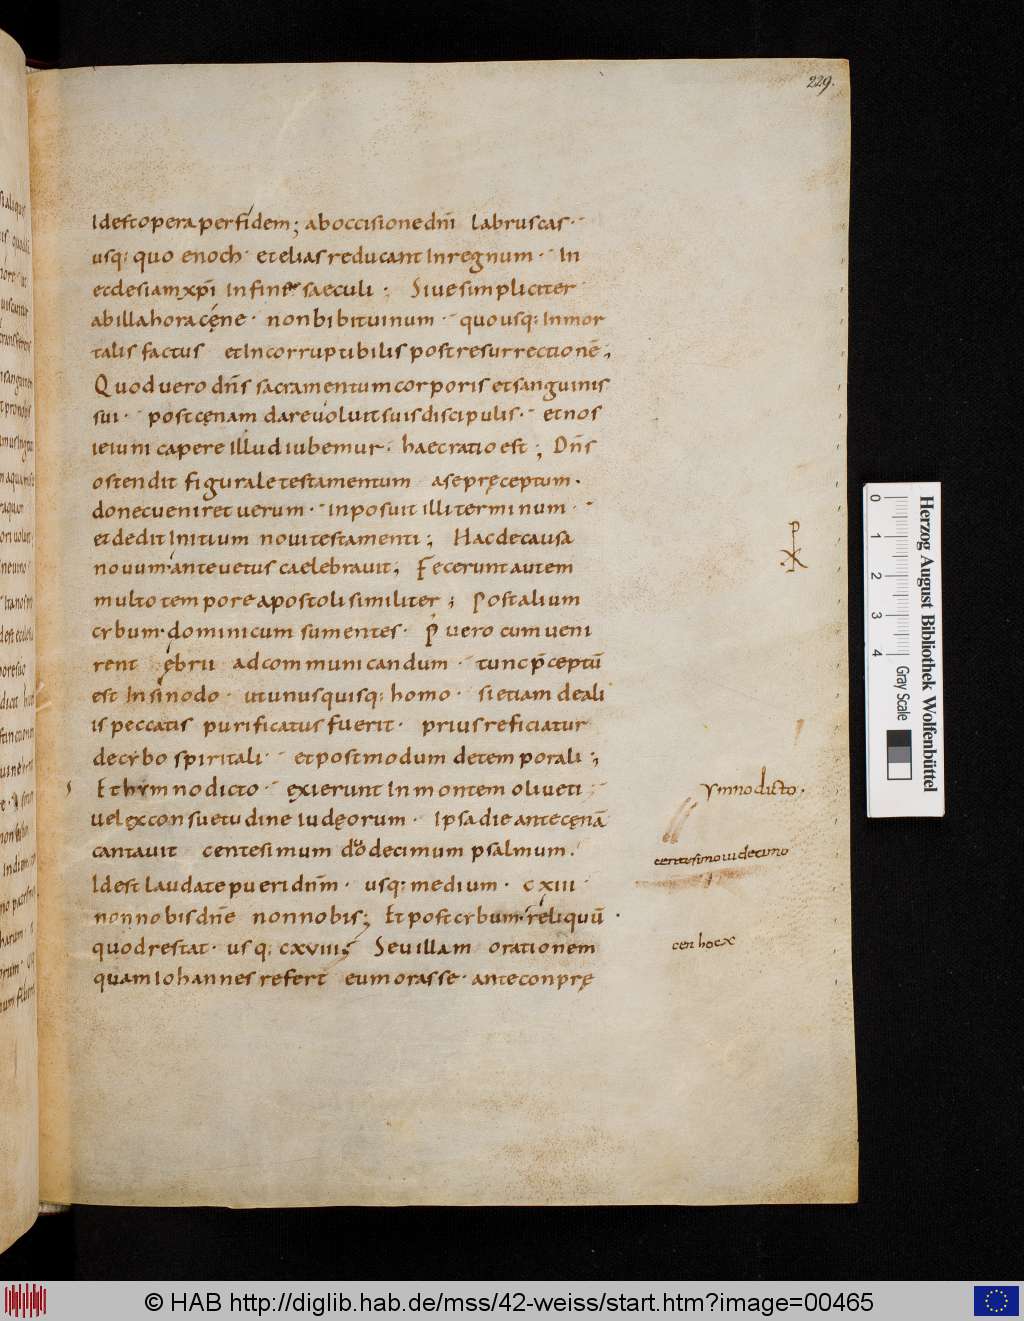 229.
Idest opera perfidem; ab occisione dn̄i labruscas·
usq: quo enoch· et elias reducant In regnum· In
ecclesiam xp̄i In fine saeculi· Siue simpliciter
ab illa hora cęne· non bibit uinum· quo usq: In mor
talis factus et Incorruptibilis post resurrectionē;
Quod uero dn̄s sacramentum corporis et sanguinis
sui· post cęnam dare uoluit suis discipulis· et nos
ieiuni capere illud iubemur· haec ratio est; Dn̄s
ostendit figurale testamentum a se pręceptum·
donec ueniret uerum· In posuit illi terminum·
et dedit Initium noui testamenti; Hac de causa
nouum ante uetus caelebrauit; Fecerunt autem
multo tempore apostoli similiter; Post alium
crbum· dominicum sumentes· P̄ uero cum ueni
rent ębrii ad communicandum· tunc p̄ceptū
est In sinodo· ut unusquisq: homo· si etiam de ali
is peccatis purificatus fuerit· prius reficiatur
de crbo spiritali· et postmodum de temporali;
Et hymno dicto· exierunt In montem oliueti;
Uel ex consuetudine Iudęorum· Ipsa die ante cęnā
cantauit centesimum duodecimum psalmum.
Idest laudate pueri dn̄m· usq: medium· cxiii
non nobis dn̄e non nobis; Et post crbum· reliquū·
quod restat· usq: cxviii; Seu illam orationem
quam Iohannes refert eum orasse· ante conprę
ymno dicto·
centesimo iii decimo
cen hoc x
Herzog August Bibliothek Wolfenbüttel
Gray Scale
0 1 2 3 4
© HAB http://diglib.hab.de/mss/42-weiss/start.htm?image=00465